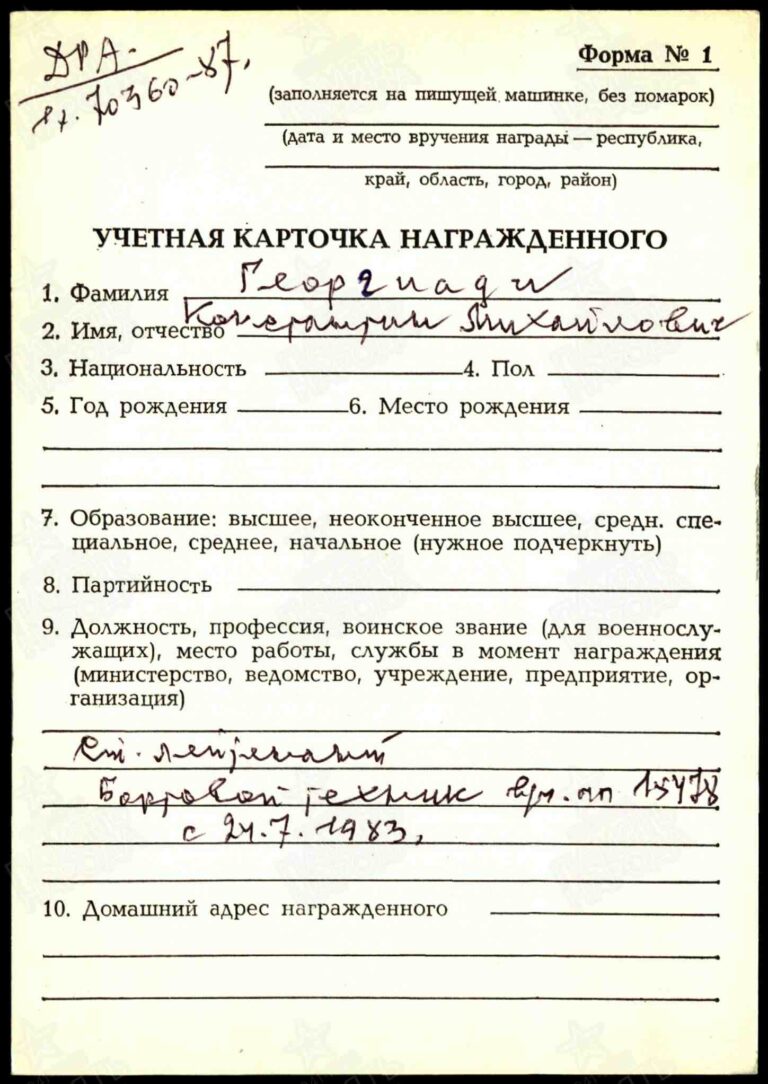 ДРА.
вх. 70360-87.
Форма № 1
(заполняется на пишущей машинке, без помарок)
(дата и место вручения награды — республика,
край, область, город, район)
УЧЕТНАЯ КАРТОЧКА НАГРАЖДЕННОГО
1. Фамилия Георгиади
2. Имя, отчество Константин Михайлович
3. Национальность 4. Пол
5. Год рождения 6. Место рождения
7. Образование: высшее, неоконченное высшее, средн. спе-
циальное, среднее, начальное (нужное подчеркнуть)
8. Партийность
9. Должность, профессия, воинское звание (для военнослу-
жащих), место работы, службы в момент награждения
(министерство, ведомство, учреждение, предприятие, ор-
ганизация)
ст. лейтенант
Бортовой техник в/ч. пп 15478
с 24.7.1983.
10. Домашний адрес награжденного